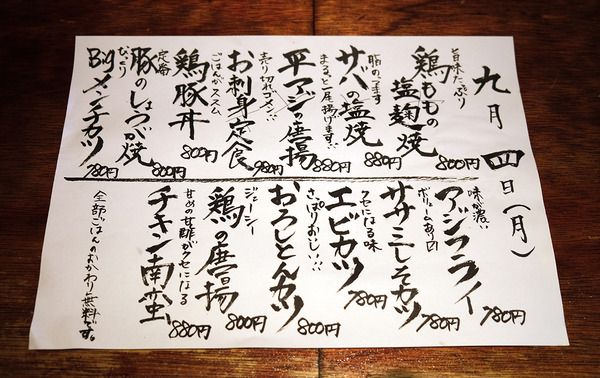 九月四日(月)
旨味たっぷり
鶏ももの塩麹焼
800円
脂のってます
サバの塩焼
880円
まるまる一尾揚げます!!
平アジの唐揚
880円
売り切れゴメン!!
お刺身定食
980円
ごはんがススム
鶏豚丼
800円
定番
豚のしょうが焼
800円
びっくり
Bigメンチカツ
780円
味が濃い
アジフライ
780円
ボリュームあり
ササミしそカツ
780円
クセになる味
エビカツ
780円
さっぱりおいしい!!
おろしとんカツ
800円
ジューシー
鶏の唐揚
800円
甘めの甘酢がクセになる
チキン南蛮
880円
全部ごはんのおかわり無料です。